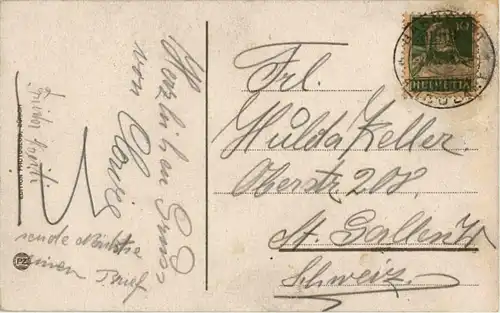 Herzlichen Gruss
von
sende Nächste
einen Brief
EDITION PHOTOGLOB, ZÜRICH
PZ
10
HELVETIA
Frl.
Hulda Keller.
Oberstr. 208.
St. Gallen W
Schweiz.